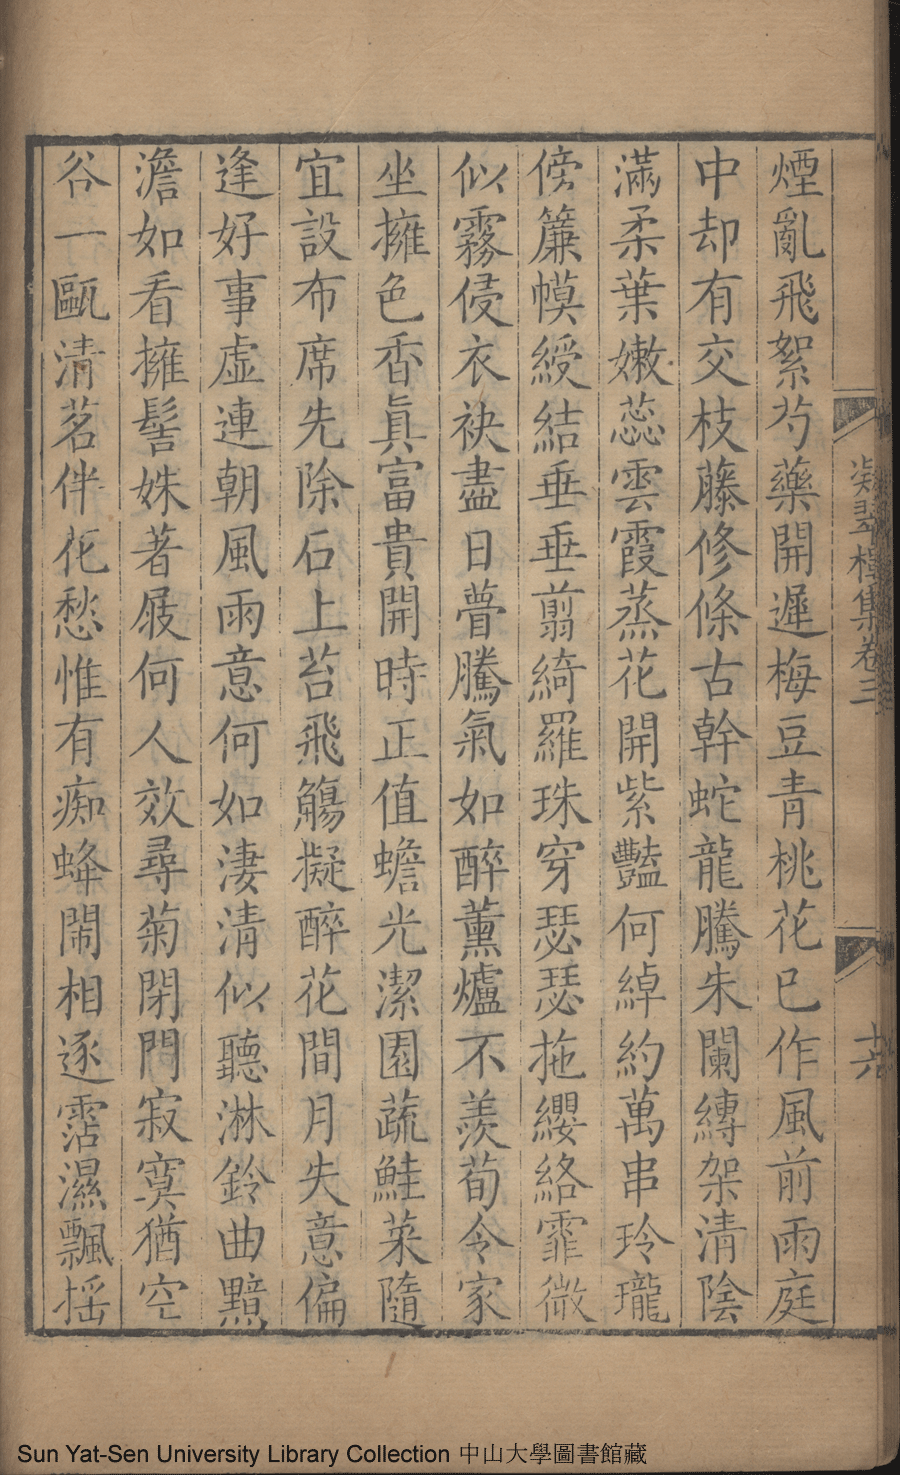 凝翠樓集卷三
十六
煙亂飛絮芍藥開遲梅豆青桃花已作風前雨庭
中却有交枝藤修條古幹蛇龍騰朱闌縳架清陰
滿柔葉嫩蕊雲霞蒸花開紫豔何綽約萬串玲瓏
傍簾幙綬結垂垂剪綺羅珠穿瑟瑟拖纓絡霏微
似霧侵衣袂盡日瞢騰氣如醉薰爐不羨荀令家
坐擁色香眞富貴開時正值蟾光潔園蔬鮭菜隨
宜設布席先除石上苔飛觴擬醉花間月失意偏
逢好事虛連朝風雨意何如淒清似聽淋鈴曲黯
澹如看擁髻姝著屐何人效尋菊閉門寂寞猶空
谷一甌清茗伴花愁惟有痴蜂鬧相逐霑濕飄搖
Sun Yat-Sen University Library Collection 中山大學圖書館藏